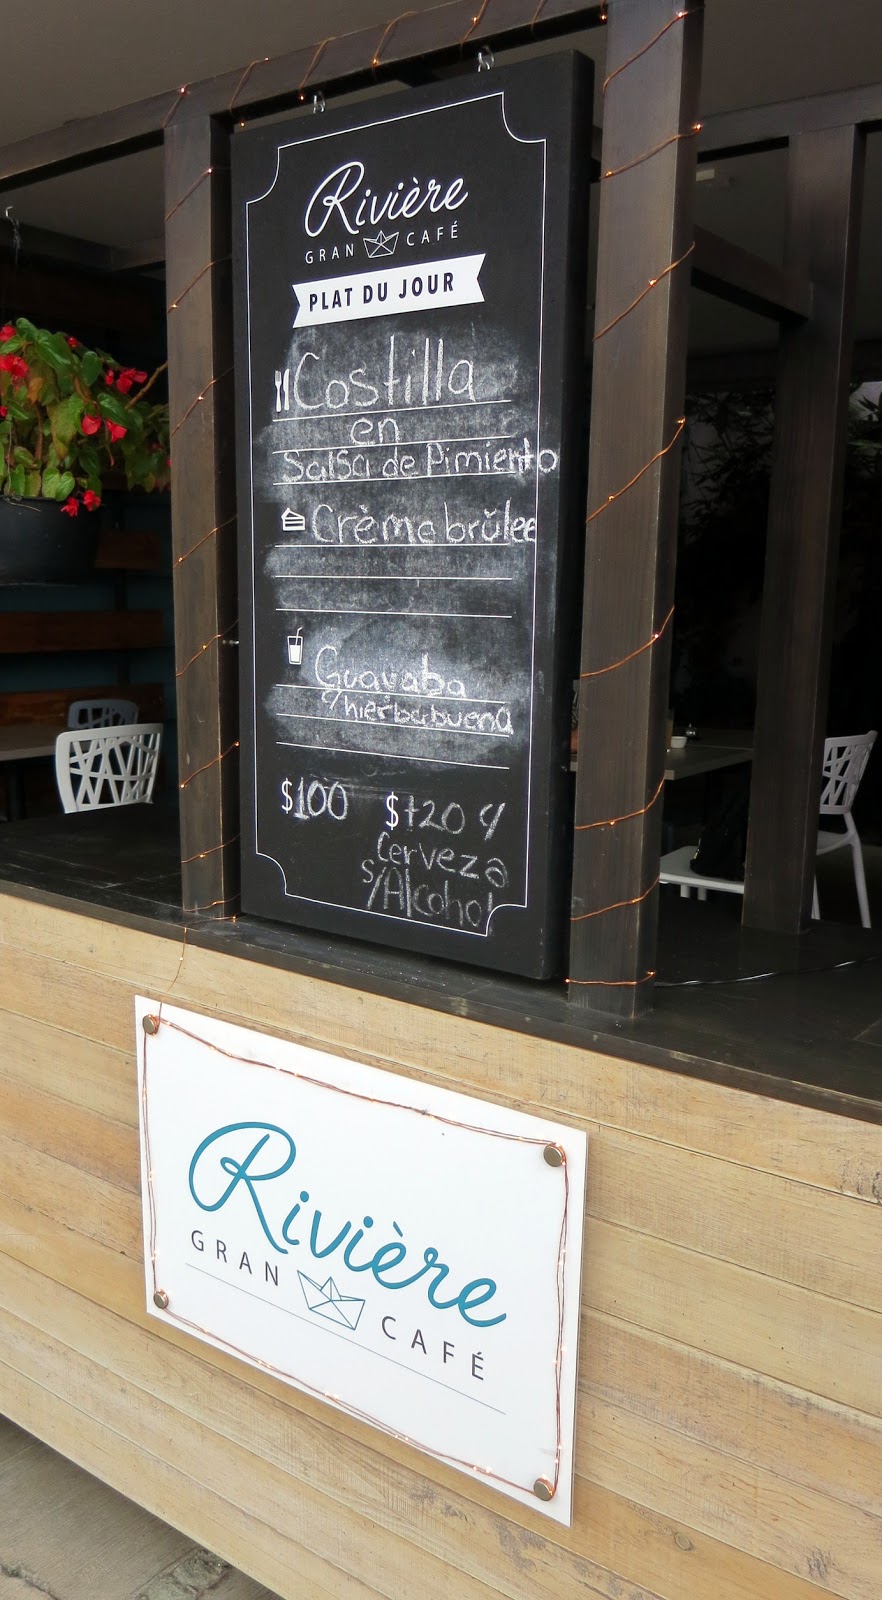 Rivière
GRAN CAFÉ
PLAT DU JOUR
Costilla
en
Salsa de Pimiento
Crème brŭlee
Guayaba
c/hierbabuena
$100 $120 c/
Cerveza
s/Alcohol
Rivière
GRAN CAFÉ